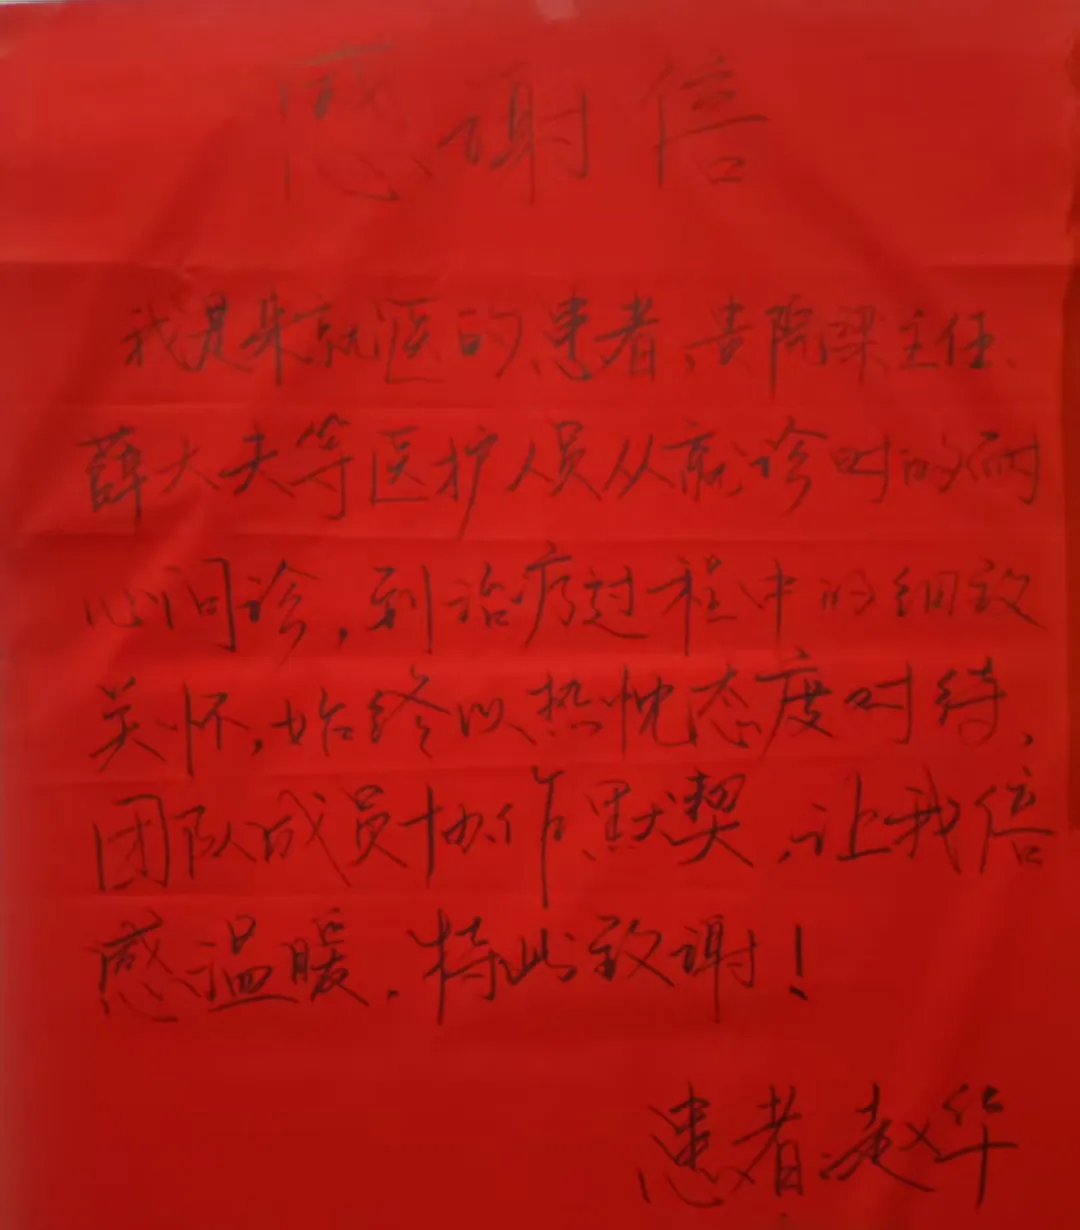 感谢信
我是来就医的患者,贵院梁主任、
薛大夫等医护人员从就诊时的耐
心问诊,到治疗过程中的细致
关怀,始终以热忱态度对待,
团队成员协作默契,让我倍
感温暖.特此致谢!
患者:赵华